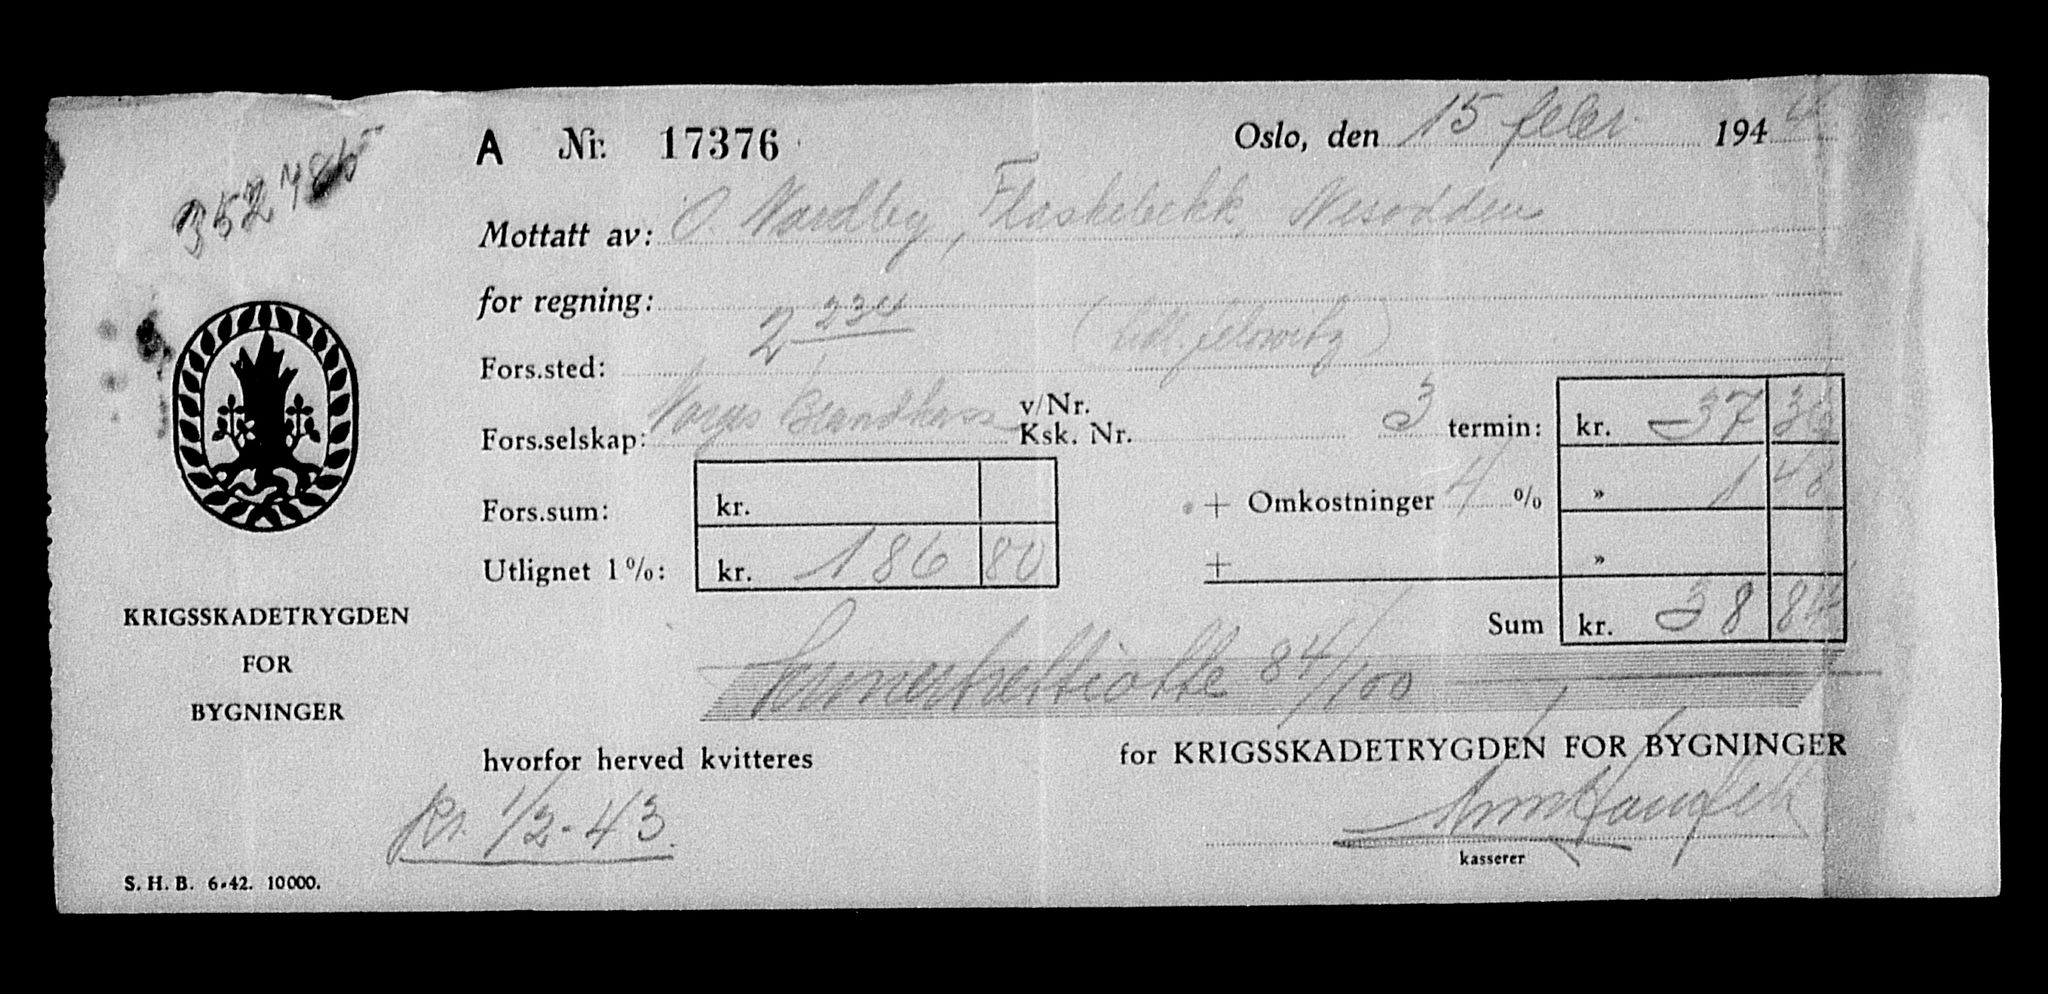 A Nr. 17376 Oslo, den 15 febr. 194
Mottatt av: O. Nordby, Flaskebekk, Nesodden
for regning:
2 234
Fors.sted:
Fors.selskap: Norges Brandkasse v/Nr. Ksk. Nr. 3 termin: kr. 37 36
Fors.sum: kr. + Omkostninger 4 % » 1 48
Utlignet 1%: kr. 186 80 + »
Sum kr. 38 84
84/100
KRIGSSKADETRYGDEN
FOR
BYGNINGER
hvorfor herved kvitteres for KRIGSSKADETRYGDEN FOR BYGNINGER
1/2-43.
kasserer
S. H. B. 6-42. 10000.